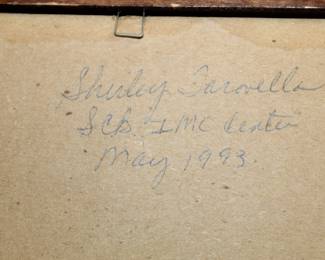 Shirley Tarovella
Sch. IMC Center
May 1993.